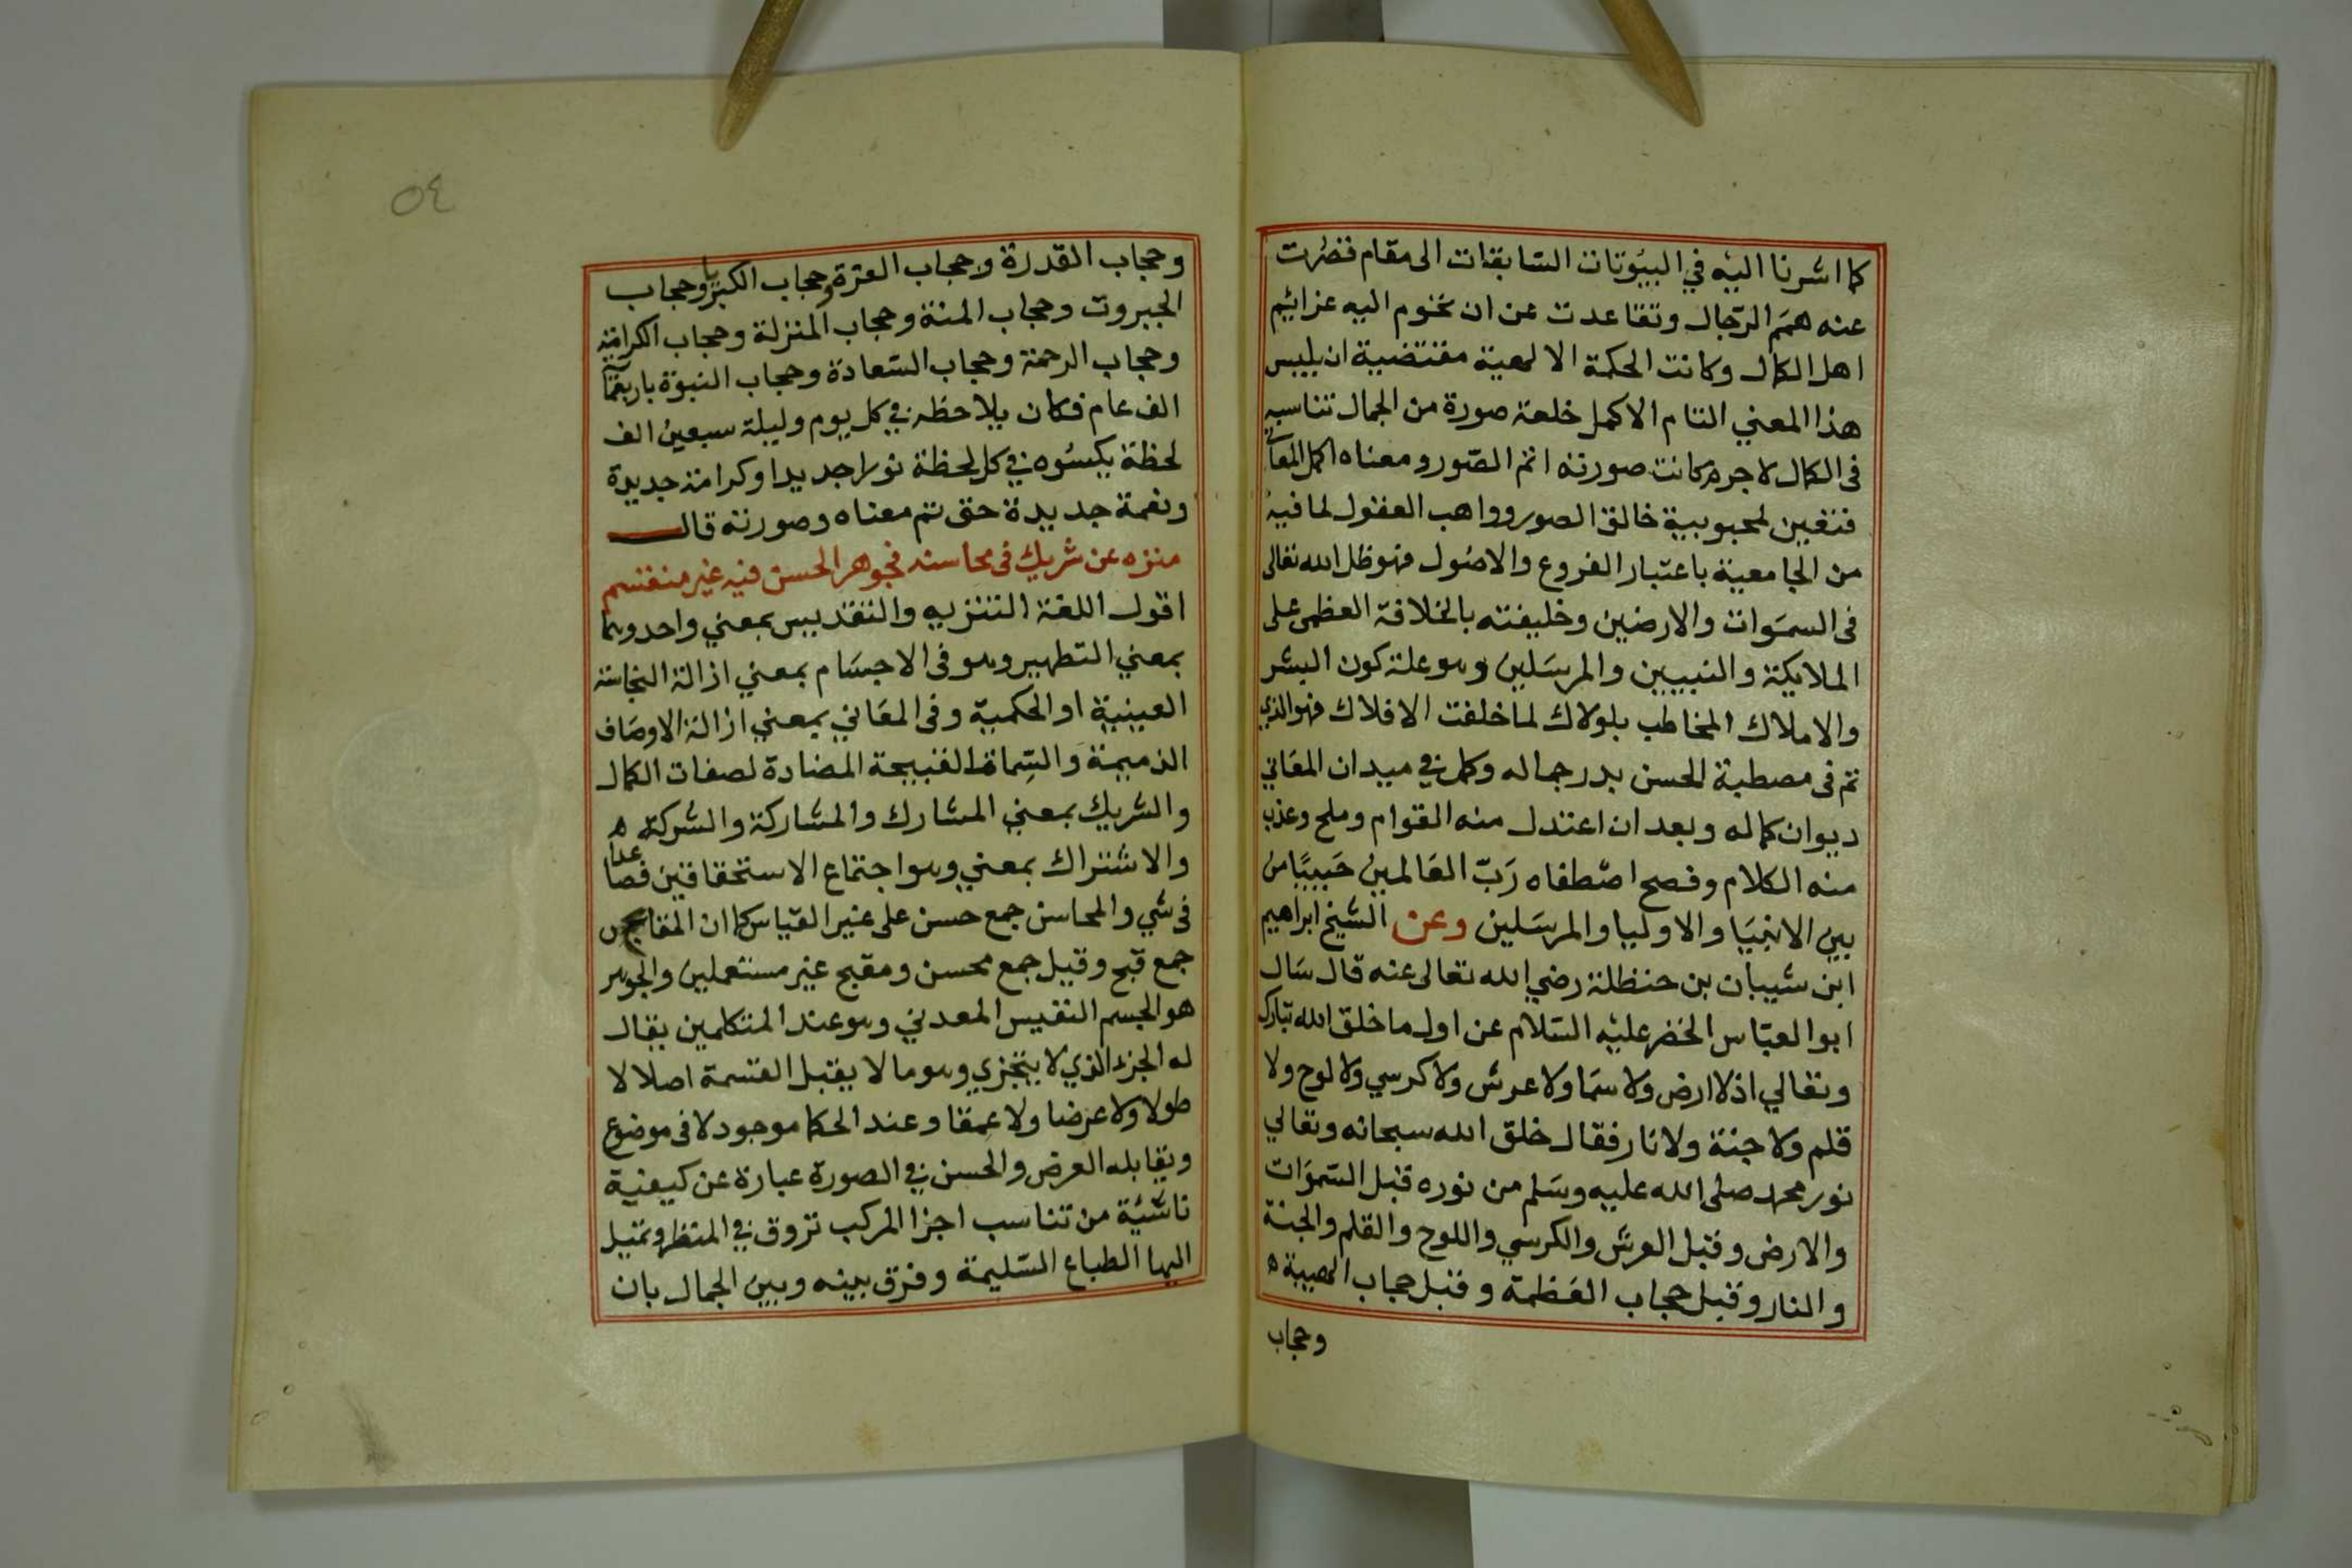 كما اشرنا اليه في البيوتات السابقات الى مقام قصرت
عنه همم الرجال وتقاعدت عن ان تحوم اليه عزايم
اهل الكمال وكانت الحكمة الالهية مقتضية ان يلبس
هذا المعني التام الاكمل خلعة صورة من الجمال تناسبه
فى الكمال لاجرم كانت صورته اتم الصور ومعناه اكمل المعاني
فتعين لمحبوبية خالق الصور وواهب العقول لما فيه
من الجامعية باعتبار الفروع والاصول فهو ظل الله تعالى
فى السموات والارضين وخليفته بالخلافة العظمى على
الملايكة والنبيين والمرسلين وهو علة كون البشر
والاملاك المخاطب بلولاك لما خلقت الافلاك فهو الذي
تم فى مصطبة الحسن بدر جماله وكمل في ميدان المعاني
ديوان كماله وبعد ان اعتدل منه القوام وملح وعذب
منه الكلام وفصح اصطفاه رب العالمين حبيبا من
بين الانبيا والاوليا والمرسلين وعن الشيخ ابراهيم
ابن شيبان بن حنظلة رضي الله تعالى عنه قال سال
ابو العباس الخضر عليه السلام عن اول ما خلق الله تبارك
وتعالي اذ لا ارض ولا سما ولا عرش ولا كرسي ولا لوح ولا
قلم ولا جنة ولا نار فقال خلق الله سبحانه وتعالي
نور محمد صلى الله عليه وسلم من نوره قبل السموات
والارض وقبل العرش والكرسي واللوح والقلم والجنة
والنار وقبل حجاب العظمة وقبل حجاب الهيبة ه
وحجاب
٥٤
وحجاب القدرة وحجاب العزة وحجاب الكبريا وحجاب
الجبروت وحجاب المنة وحجاب المنزلة وحجاب الكرامة
وحجاب الرحمة وحجاب السعادة وحجاب النبوة باربعماية
الف عام فكان يلاحظه في كل يوم وليلة سبعين الف
لحظة يكسوه في كل لحظة نورا جديدا وكرامة جديدة
ونعمة جديدة حتى تم معناه وصورته قال
منزه عن شريك فى محاسنه فجوهر الحسن فيه غير منقسم
اقول اللغة التنزيه والتقديس بمعني واحد وهما
بمعني التطهير وهو فى الاجسام بمعني ازالة النجاسة
العينية او الحكمية وفى المعاني بمعني ازالة الاوصاف
الذميمة والسماة القبيحة المضادة لصفات الكمال
والشريك بمعني المشارك والمشاركة والشركة ه
والاشتراك بمعني وهو اجتماع الاستحقاقين فصاعدا
فى شي والمحاسن جمع حسن على غير القياس كما ان المقابح
جمع قبح وقيل جمع محسن ومقبح غير مستعملين والجوهر
هو الجسم النفيس المعدني وهو عند المتكلمين يقال
له الجزء الذي لا يتجزي وهو ما لا يقبل القسمة اصلا لا
طولا ولا عرضا ولا عمقا وعند الحكما موجود لا فى موضوع
ويقابله العرض والحسن في الصورة عبارة عن كيفية
ناشية من تناسب اجزا المركب تروق في المنظر وتميل
اليها الطباع السليمة وفرق بينه وبين الجمال بان